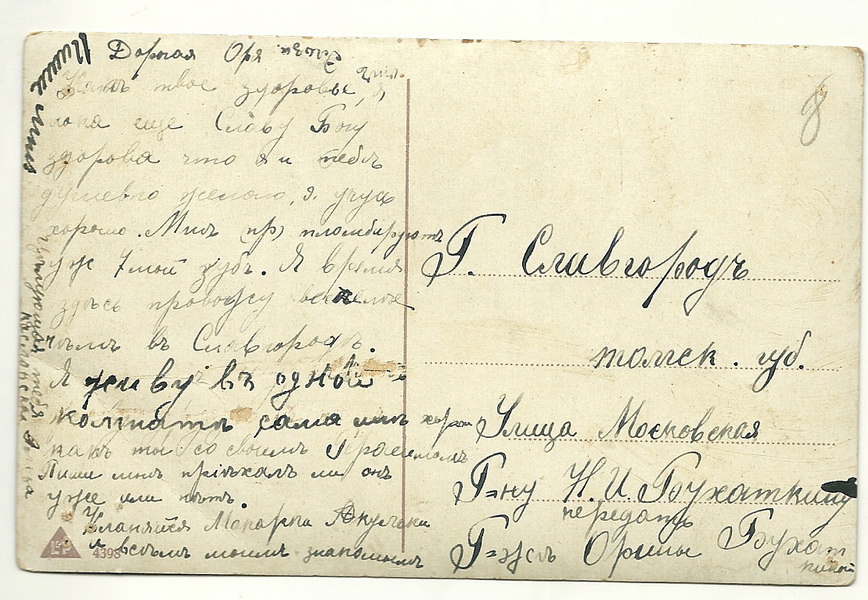 Дорогая Оря
Какъ твое здоровье, я
пока еще Славу Богу
здорова что я и тебѣ
душевно желаю, я учусь
хорошо. Мнѣ пломбируютъ
уж 7мой зубъ. Я время
здѣсь провожу веселѣе
чѣмъ въ Славгородѣ.
Я живу въ одной
комнатѣ сама мнѣ хорошо
какъ ты со своимъ Герасимомъ
Пиши мнѣ пріѣхалъ ли онъ
уже или нѣтъ.
Кланяйся Макарка
и всѣмъ моимъ знакомымъ
Пиши
тебя
Г. Славгородъ
томск. губ.
Улица Московская
Г=ну Н. И. Бухаткину
передать
Г=жѣ Орины Бухат
киной
8
4398